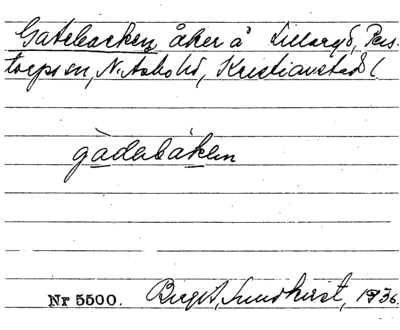 Gatebacken, åker å Lillaryd, Pers-
torps sn, N. Åsbo hd, Kristianstads l.
gàdabákĕn
Nr 5500. Birgit Sundkvist, 1936.